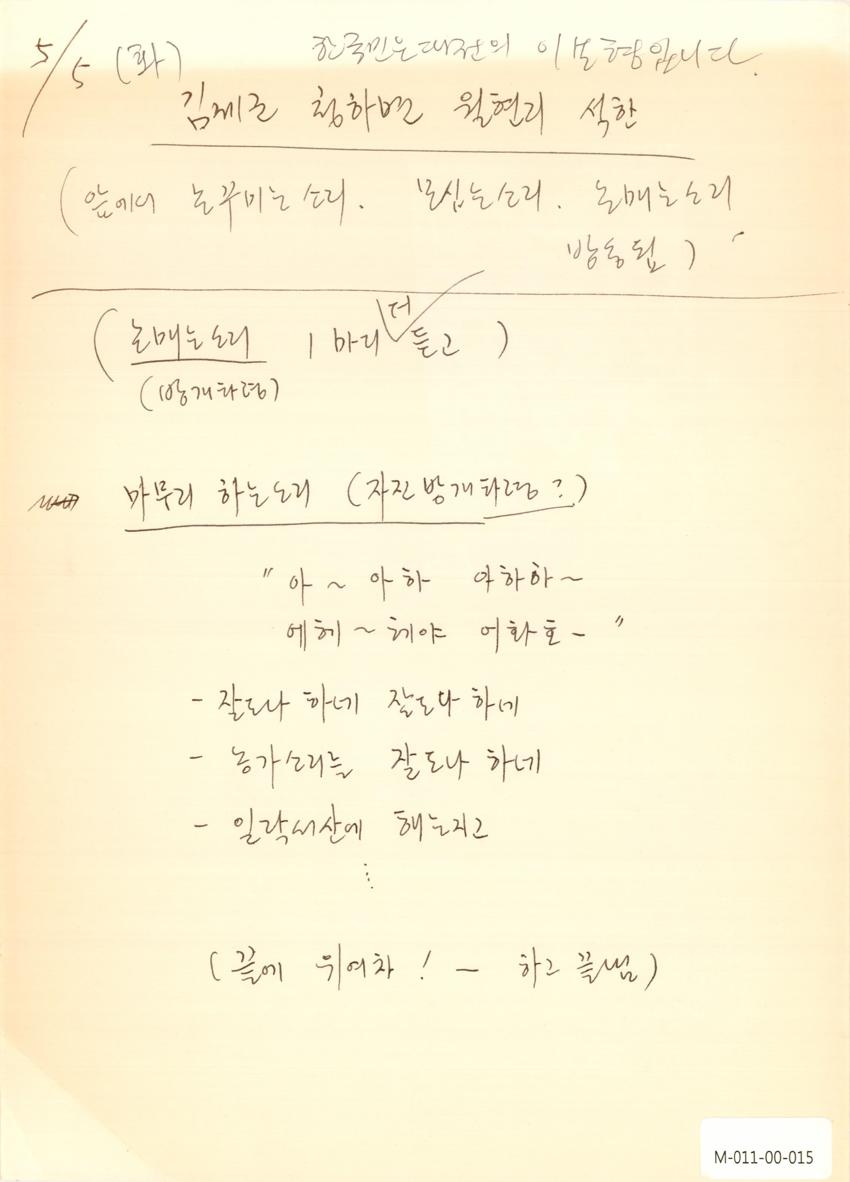 5/5 (화) 한국민요대전의 이보형입니다.
김제군 청하면 월현리 석한
(앞에서 논꾸미는소리. 모심는소리. 논매는소리
방송됨)
(논매는소리 1마리 더 듣고)
(방개타령)
마무리 하는소리 (자진방개타령?)
"아~ 아하 아하하~
에헤~헤야 어화호-"
- 잘도나 하네 잘도나 하네
- 농가소리를 잘도나 하네
- 일락서산에 해는지고
⋮
(끝에 위여차! — 하고 끝냄)
M-011-00-015